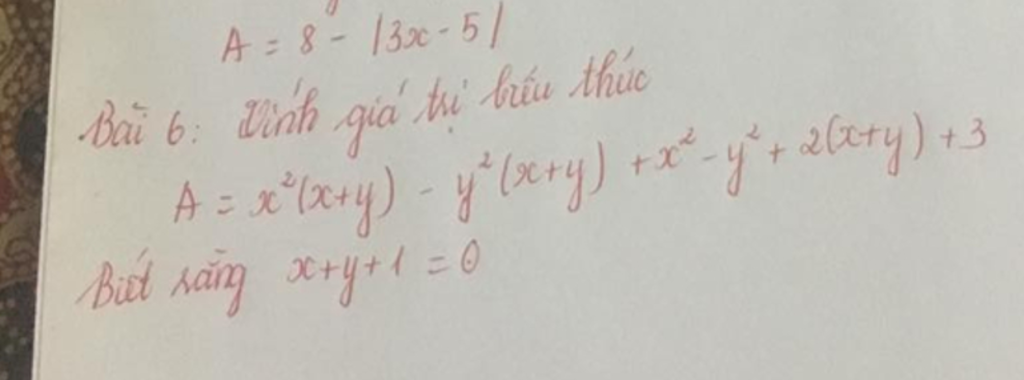 A = 8 - |3x - 5|
Bài 6: Tính giá trị biểu thức
A = x²(x+y) - y²(x+y) + x² - y² + 2(x+y) + 3
Biết rằng x+y+1 = 0